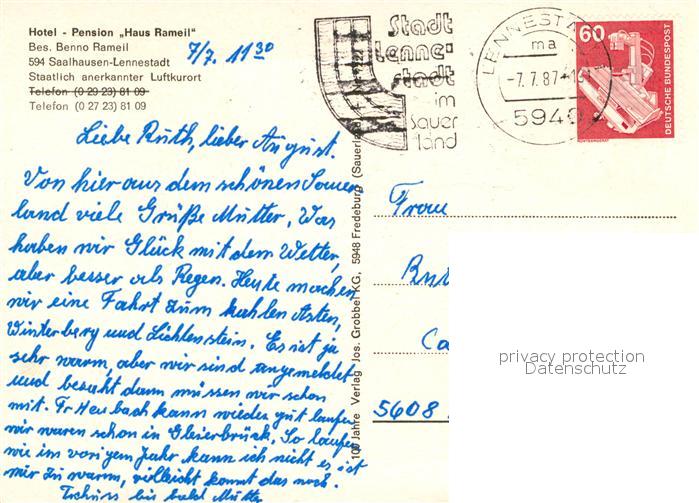 Hotel - Pension „Haus Rameil"
Bes. Benno Rameil
594 Saalhausen-Lennestadt
Staatlich anerkannter Luftkurort
Telefon (0 29 23) 81 09
Telefon (0 27 23) 81 09
7/7. 11 30
Stadt
Lenne-
stadt
im
Sauer
land
LENNESTADT
ma
-7.7.87-
5940
60
DEUTSCHE BUNDESPOST
Liebe Ruth, lieber August.
Von hier aus dem schönen Sauer
land viele Grüße Mutter, Was
haben wir Glück mit dem Wetter,
aber besser als Regen. Heute machen
wir eine Fahrt zum kahlen Asten,
Winterberg und Lichtenstein. Es ist ja
sehr warm, aber wir sind angemeldet
und bezahlt dann müssen wir schon
mit. Fr Heubach kann wieder gut laufen
wir waren schon in Gleierbrück. So laufen
wie im vorigem Jahr kann ich nicht es ist
mir zu warm, vielleicht kommt das noch.
Tschüss bis bald Mutter
100 Jahre Verlag Jos. Grobbel KG, 5948 Fredeburg (Sauerland)
Frau
Ca
5608
privacy protection
Datenschutz